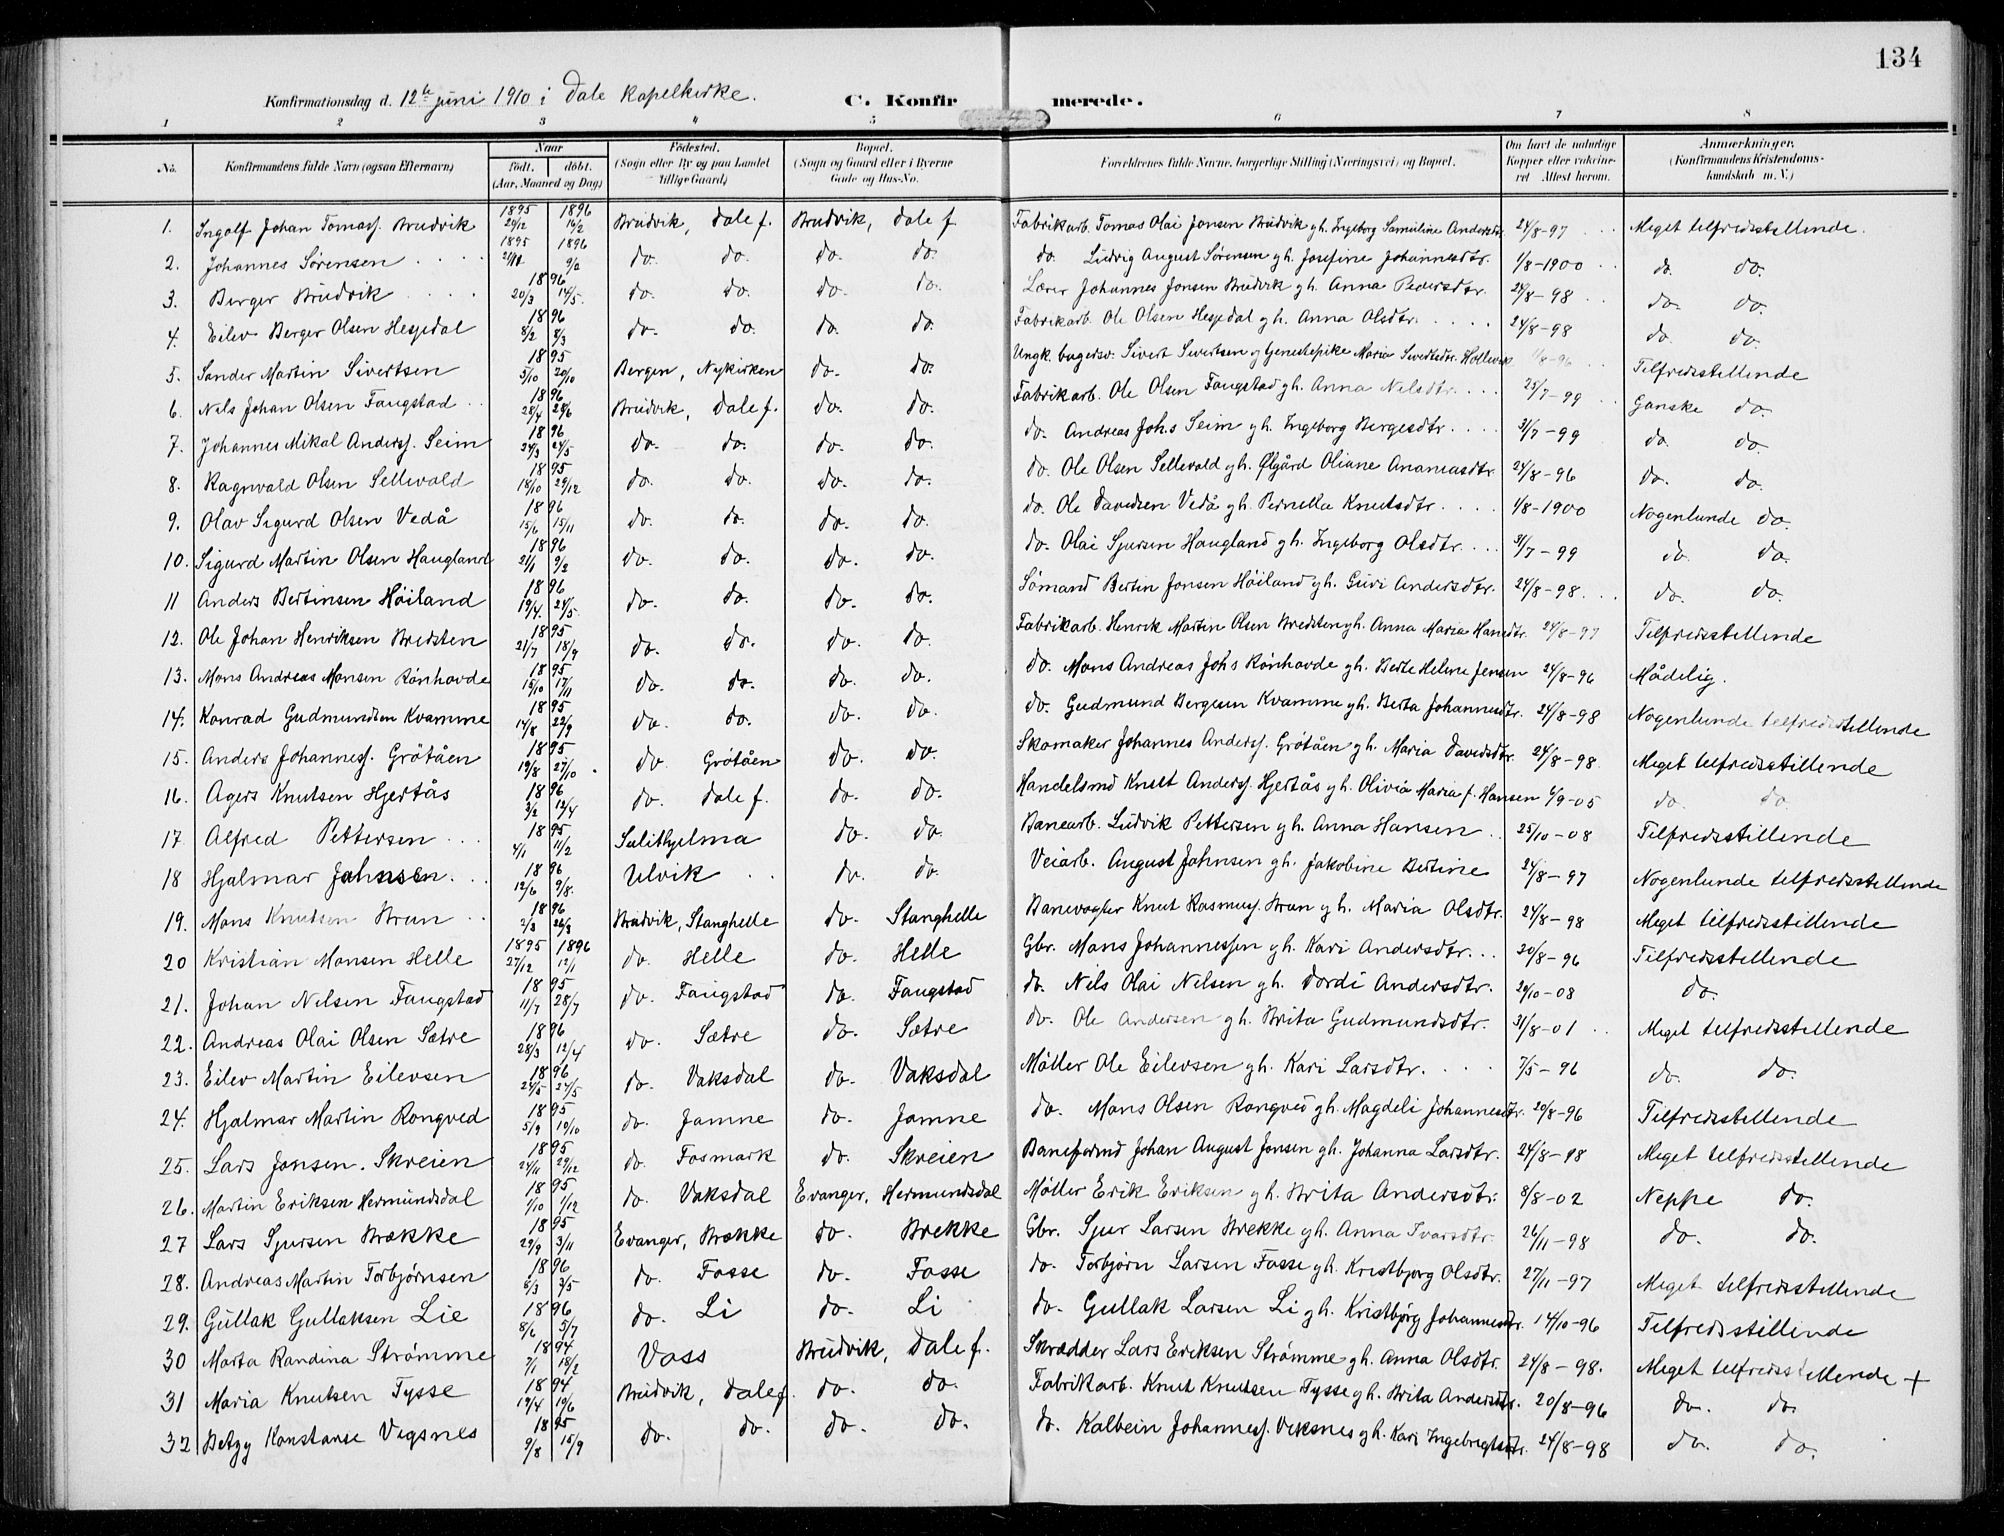 134
Konfirmationsdag d. 12te juni 1910 i Dale Kapelkirke. C. Konfirmerede.
1 2 3 4 5 6 7 8
No. Konfirmandens fulde Navn (ogsaa Efternavn) Naar født. døbt. (Aar, Maaned og Dag) Fødested. (Sogn eller By og paa Landet tillige Gaard) Bopæl. (Sogn og Gaard eller i Byerne Gade og Hus-No. Forældrenes fulde Navne, borgerlige Stilling (Næringsvei) og Bopæl. Om havt de naturlige Kopper eller vakcineret Attest herom. Anmærkninger. (Konfirmandens Kristendomskundskab m. V.)
1. Ingolf Johan Tomass. Brudvik 1895 24/12 1896 16/2 Brudvik, Dale f. Brudvik, Dale f Fabrikarb. Tomas Olai Jonsen Brudvik g h. Ingeborg Samuline Andersdtr. 24/8-97 Meget tilfredsstillende.
2. Johannes Sørensen 1895 1896 9/2 do. do. do. do. do. Ludvig August Sørensen g h. Josefine Johannesdtr. 1/8-1900 do. do.
3. Berger Brudvik 1896 20/3 14/5 do. do. do. do. Lærer Johannes Jonsen Brudvik g h. Anna Pedersdtr. 24/8-98 do. do.
4. Eilev Berger Olsen Hesjedal 1896 8/2 8/3 do. do. do. do. Fabrikarb. Ole Olsen Hesjedal g h. Anna Olsdtr. 24/8-98 do. do.
5. Sander Martin Sivertsen 1895 5/10 20/10 Bergen, Nykirken do. do. Ungk. bagersv. Sivert Sivertsen og tjenestepike Maria Sivertsdtr. Tilfredsstillende
6. Nels Johan Olsen Faugstad 1896 28/4 Brudvik, Dale f. do. do. Fabrikarb. Ole Olsen Faugstad g h. Anna Nelsdtr. 25/7-99 Ganske do.
7. Johannes Mikal Anderss. Seim 1896 24/3 24/5 do. do. do. do. do. Andreas Johs Seim g h. Ingeborg Bergesdtr. 31/7-99 do. do.
8. Ragnvald Olsen Sellevold 1895 18/10 29/12 do. do. do. do. do. Ole Olsen Sellevold g h. Ølgård Oliane Ananiasdtr. 24/8-96 do. do.
9. Olav Sigurd Olsen Vedå 1896 15/6 15/11 do. do. do. do. do. Ole Davidsen Vedå g h. Pernella Knutsdtr. 1/8-1900 Nogenlunde do.
10. Sigurd Martin Olsen Haugland 1896 21/1 9/2 do. do. do. do. do. Olai Sjursen Haugland g h. Ingeborg Olsdtr. 31/7-99 do. do.
11 Anders Bertinsen Høiland 1896 19/4. 24/5. do. do. do. do. Sømand Bertin Jonsen Høiland g h. Guri Andersdtr. 24/8-98. do. do.
12. Ole Johan Henriksen Bredsten 1895 21/7 18/9 do. do. do. do. Fabrikarb. Henrik Martin Olsen Bredsten g h. Anna Maria Hansdtr. 24/8-97 Tilfredsstillende
13. Mons Andreas Monsen Rønhovde 1895 15/10 17/11 do. do. do. do. do. Mons Andreas Johs Rønhovde g h. Berte Helene Jensen 24/8-96 Mådelig.
14. Konrad Gudmundsen Kvamme 1895 14/8 22/9 do. do. do. do. do. Gudmund Bergesen Kvamme g h. Berta Johannesdtr. 24/8-98 Nogenlunde tilfredsstillende
15. Anders Johanness. Grötåen 1895 19/8 27/10 do. Grötåen do. do. Skomaker Johannes Anderss. Grötåen g h. Maria Davidsdtr. 24/8-98. Meget tilfredsstillende
16. Agers Knutsen Hjertås 1896 3/2 12/4 do. Dale f. do. do. Handelsmd Knut Anderss. Hjertås g h. Olivia Maria f. Hansen 6/9-05 do. do.
17 Alfred Pettersen 1895 4/1 11/2 Sulithjelma do. do. Banearb. Ludvik Pettersen g h. Anna Hansen 25/10-08 Tilfredsstillende
18 Hjalmar Johnsen 1896 12/6 9/8. Ulvik do. do. Veiarb. August Johnsen g h. Jakobine Bertine 24/8-97 Nogenlunde tilfredsstillende
19. Mons Knutsen Brun 1896 2/3 Brudvik, Stanghelle do. Stanghelle Banevogter Knut Rasmuss. Brun g h. Maria Olsdtr. 24/8-98 Meget tilfredsstillende
20 Kristian Monsen Helle 1895 27/12 1896 12/1 do. Helle do. Helle Gbr. Mons Johannessen g h. Kari Andersdtr. 20/8-96 Tilfredsstillende
21. Johan Nelsen Faugstad 1895 11/7 28/7 do. Faugstad do. Faugstad do. Nils Olai Nelsen g h. Dordi Andersdtr. 24/10-08 do.
22. Andreas Olai Olsen Sætre 1896 28/3 12/4 do. Sætre do. Sætre do. Ole Andersen g h. Brita Gudmundsdtr. 31/8-01 Meget tilfredsstillende
23. Eilev Martin Eilevsen 1896 24/5 do. Vaksdal do. Vaksdal Møller Ole Eilevsen g h. Kari Larsdtr. 7/5-96 do. do.
24. Hjalmar Martin Rongved 1895 5/9 19/10 do. Jamne do. Jamne do. Mons Olsen Rongved g h. Magdeli Johannesdtr. 20/8-96 Tilfredsstillende
25. Lars Jonsen. Skreien 1895 24/11 29/12 do. Fosmark do. Skreien Baneformd Johan August Jonsen g h. Johanna Larsdtr. 24/8-98 Meget tilfredsstillende
26. Martin Eriksen Hermundsdal 1895 1/10 1/12 do. Vaksdal Evanger, Hermundsdal Møller Erik Eriksen g h. Brita Andersdtr. 8/8-02 Neppe do.
27 Lars Sjursen Brække 1895 29/9 3/11 Evanger, Brække do. Brekke Gbr. Sjur Larsen Brekke g h. Anna Ivarsdtr. 26/11-98 do. do.
28. Andreas Martin Torbjørnsen 1896 8/3 3/5 do. Fosse do. Fosse do. Torbjørn Larsen Fosse g h. Kristbjorg Olsdtr. 27/11-97 Meget tilfredsstillende
29. Gullak Gullaksen Lie 1896 8/6 5/7 do. Li do. Li do. Gullak Larsen Li g h. Kristbjørg Johannesdtr. 14/10-96 Tilfredsstillende
30 Marta Randina Strømme 1894 7/1 18/2 Voss Brudvik, Dale f. Skrædder Lars Eriksen Strømme g h. Anna Olsdtr. 24/8-98. Meget tilfredsstillende +
31 Maria Knutsen Tysse 1894 19/4 10/6 Brudvik, Dale f. do. do. Fabrikarb. Knut Knutsen Tysse g h. Brita Andersdtr. 20/8-96 do. do.
32 Betzy Konstanse Vegsnes 1895 9/8 15/9 do. do. do. do. do. Kolbein Johanness. Veksnes g h. Kari Ingebrigtsdtr. 24/8-98 do. do.